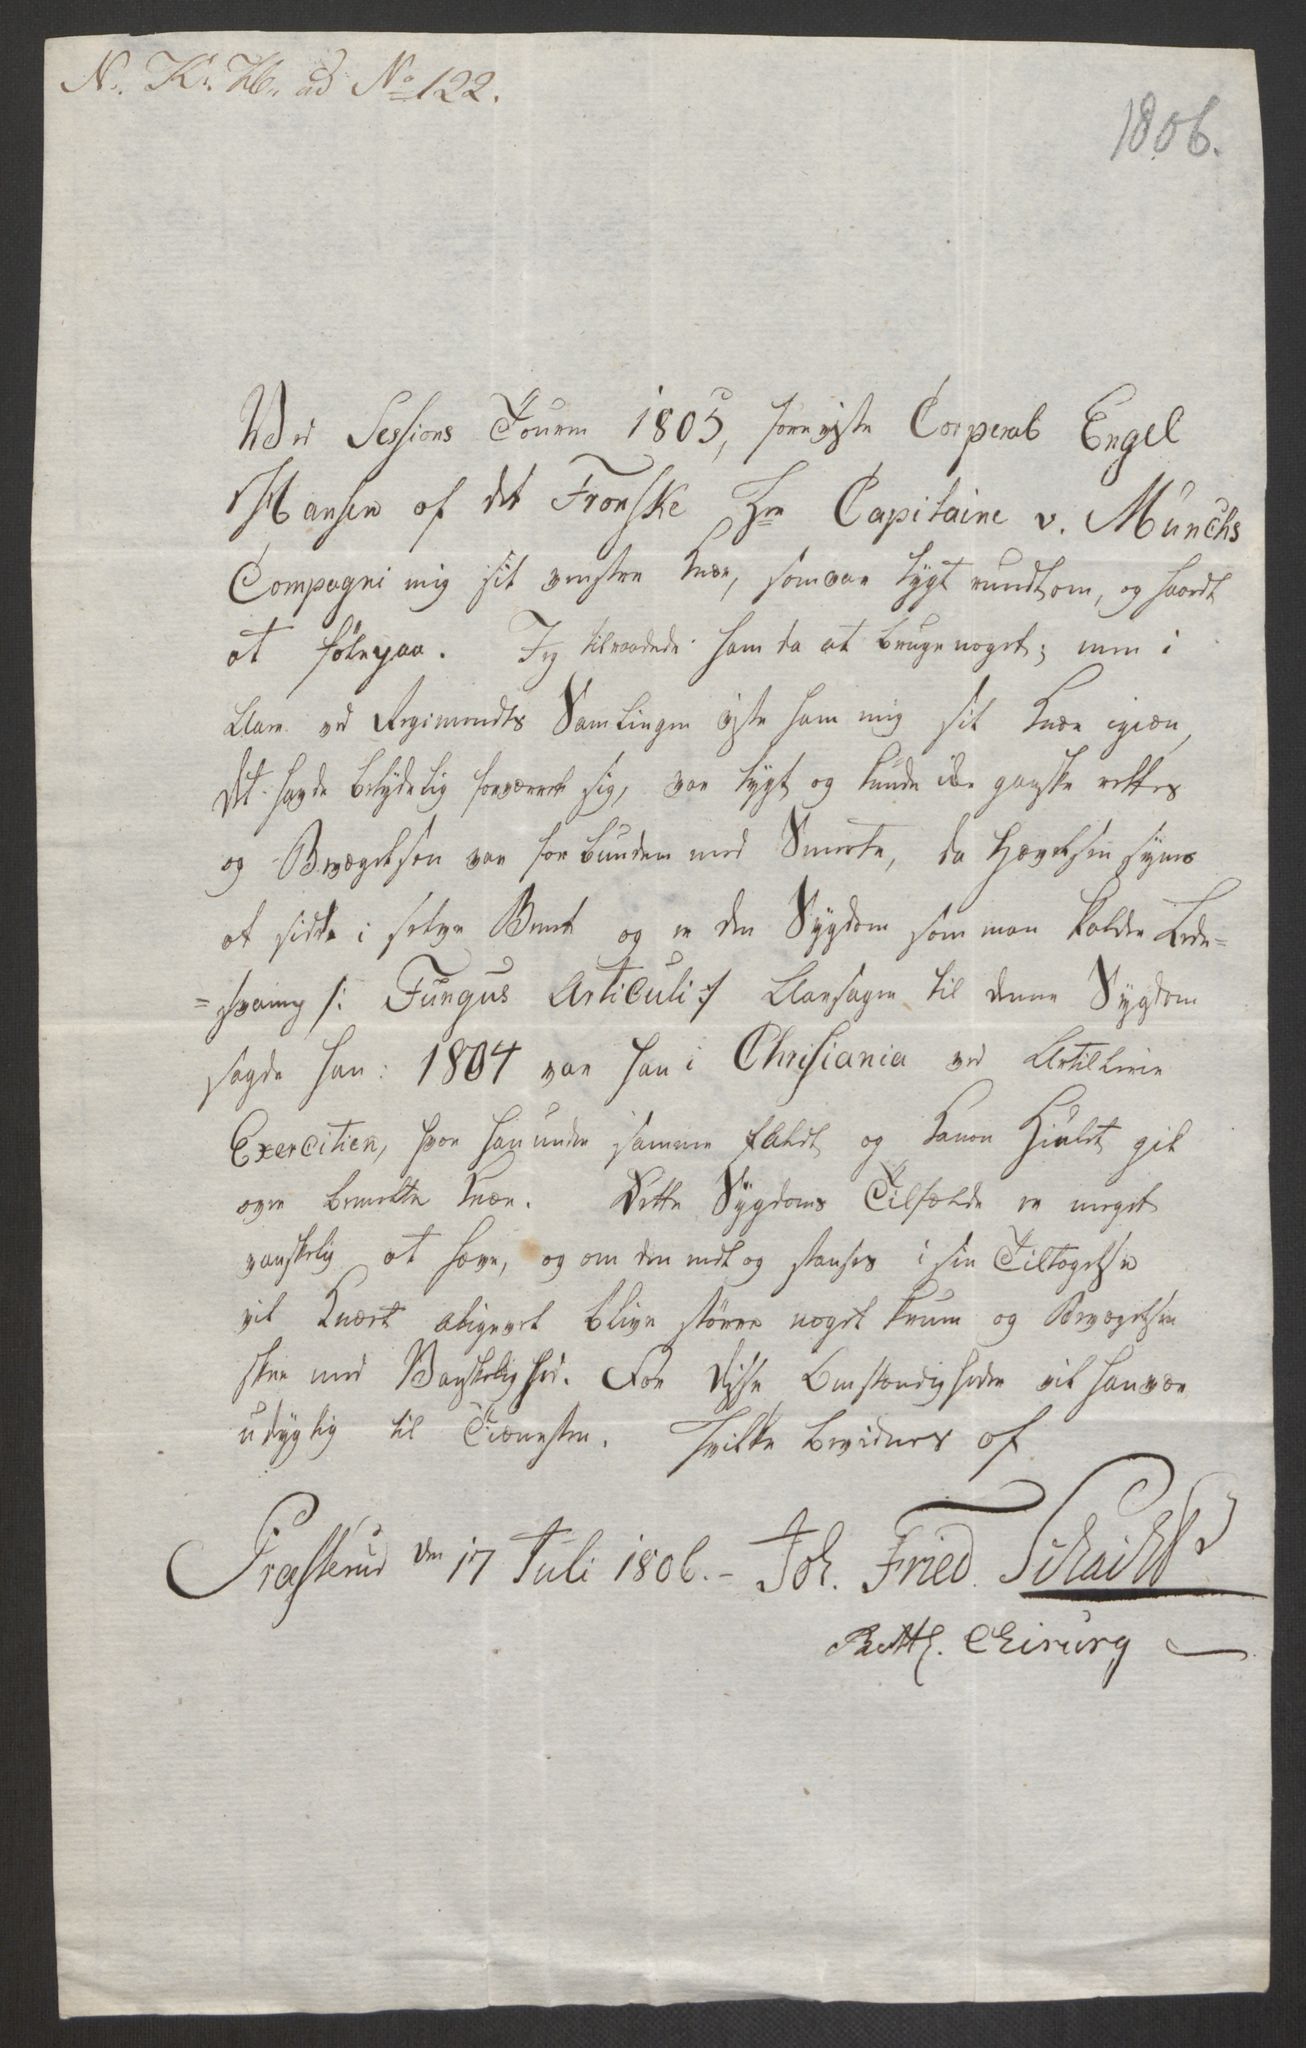 N. K. H. ad No 122.
1806.
Ved Sessions Touren 1805, foreviste Corperal Engel
Hansen af det Fronske Hrr Capitaine v. Münchs
Compagni mig sit venstre Knæe, som var tygt rundt om, og haardt
at føle paa. Jeg tilraadede ham da at bruge noget; men i
Aar ved Regiments Samlingen viste ham mig sit Knæe igien,
det havde betydelig forværret sig, var tygt og kunde ikke ganske rettes
og Bevægelsen var forbunden med Smerte, da Hævelsen synes
at sidde i selve Benet og er den Sygdom som man kalder Lede=
=svamp /: Fungus Articuli :/ Aarsagen til denne Sygdom
sagde han: 1804 var han i Chrisiania ved Artillerie
Exercitien, hvor han under samme faldt og Kanon Hiulet gik
over bemelte Knæe. Dette Sygdoms Tilfælde er meget
vanskelig at hæve, og om den endog standses i sin Tiltagelse
vil Knæet aligevel blive større noget krum og Bevægelsen
skee med Vanskelighed. For disse Omstændigheder vil han være
udygtig til Tienesten. Hvilke bevidnes af
Præsterud den 17 Juli 1806. - Joh. Fried. Schacht
Chirurg